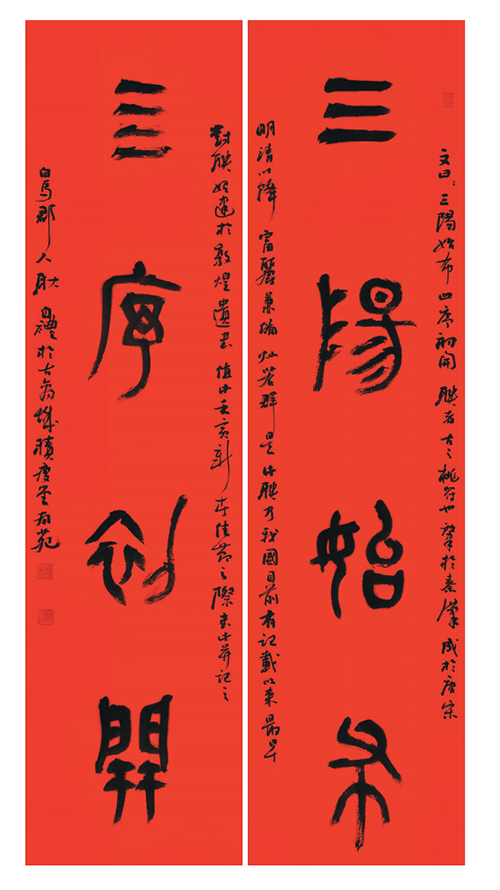 三陽始布
亖序初開
文曰三陽始布四序初開聯者古之桃符也肇於秦漢成於唐宋
明清以降富麗兼備燦若群星此聯乃我國目前有記載以來最早
對聯始建於敦煌遺書值此春佳節之際書此并記之
白馬郡人耿自禮於古城堂南苑